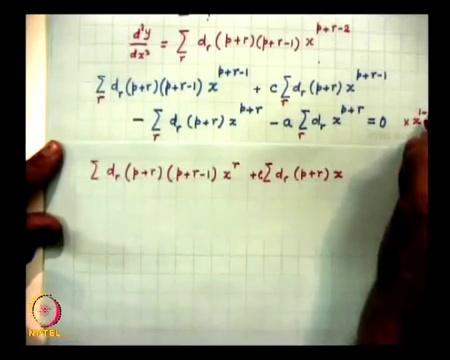 d²y/dx² = Σ_r d_r (p+r)(p+r-1) x^{p+r-2}
Σ_r d_r (p+r)(p+r-1) x^{p+r-1} + c Σ_r d_r (p+r) x^{p+r-1}
- Σ_r d_r (p+r) x^{p+r} - a Σ_r d_r x^{p+r} = 0 × x^{1-
Σ d_r (p+r)(p+r-1) x^r + c Σ d_r (p+r) x
NPTEL